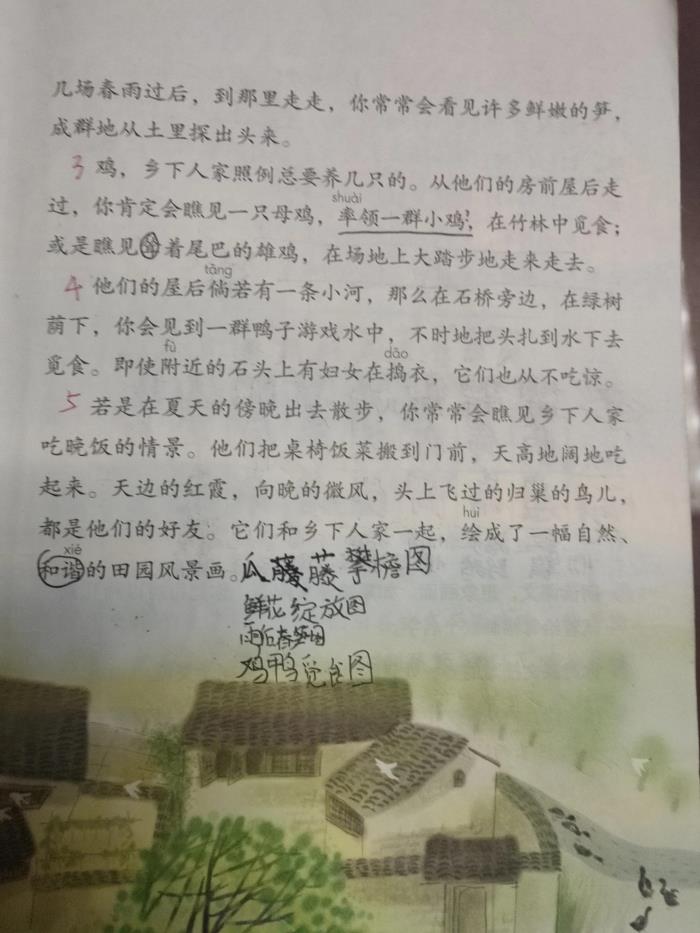 几场春雨过后，到那里走走，你常常会看见许多鲜嫩的笋，
成群地从土里探出头来。
shuài
3 鸡，乡下人家照例总要养几只的。从他们的房前屋后走
过，你肯定会瞧见一只母鸡，率领一群小鸡，在竹林中觅食；
或是瞧见耸着尾巴的雄鸡，在场地上大踏步地走来走去。
tǎng
4 他们的屋后倘若有一条小河，那么在石桥旁边，在绿树
荫下，你会见到一群鸭子游戏水中，不时地把头扎到水下去
fù dǎo
觅食。即使附近的石头上有妇女在捣衣，它们也从不吃惊。
5 若是在夏天的傍晚出去散步，你常常会瞧见乡下人家
吃晚饭的情景。他们把桌椅饭菜搬到门前，天高地阔地吃
起来。天边的红霞，向晚的微风，头上飞过的归巢的鸟儿，
huì
都是他们的好友。它们和乡下人家一起，绘成了一幅自然、
xié
和谐的田园风景画。
瓜藤攀檐图
鲜花绽放图
雨后春笋图
鸡鸭觅食图